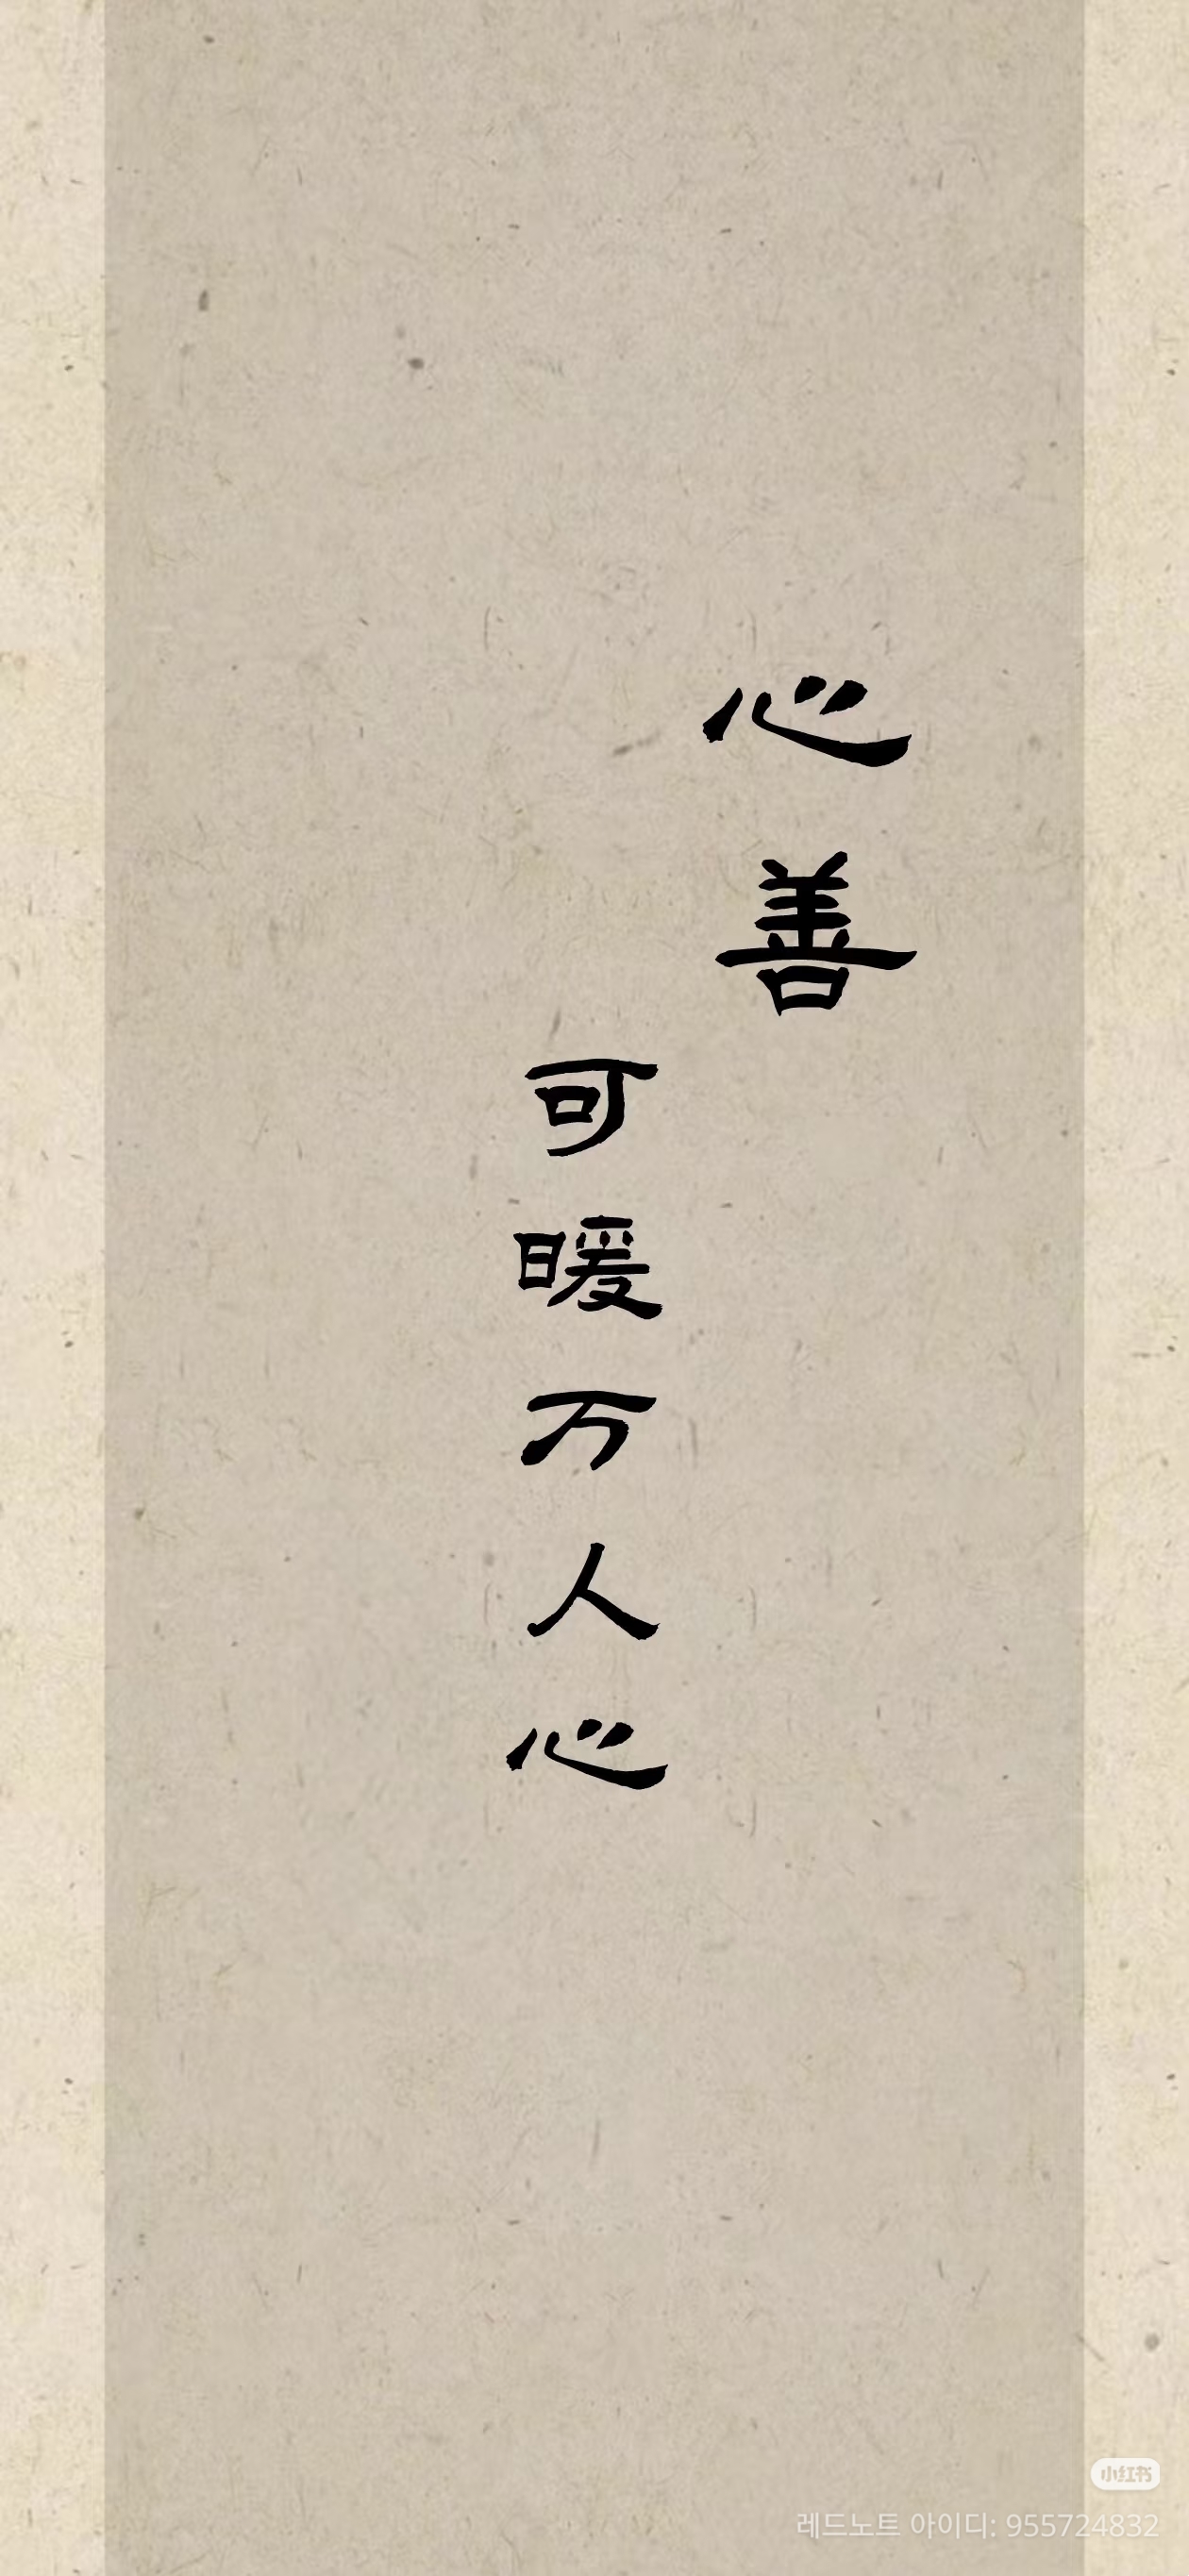 心善
可暖万人心
小红书
레드노트 아이디: 955724832